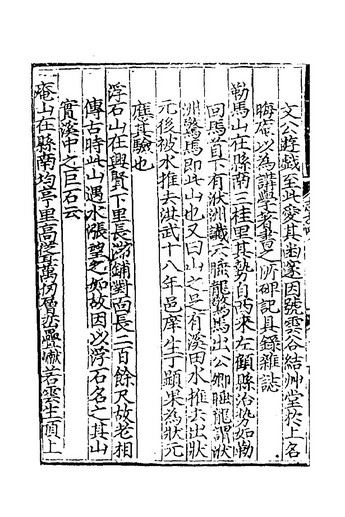 文公遊戲至此愛其幽邃因號雲谷結艸堂於上名
晦庵以為講學著書之所碑記具錄雜誌
勒馬山在縣南三桂里其勢自南來左顧縣治勢如勒
回馬首下有狀洲讖云睡龍驚馬出公卿睡龍謂狀
洲驚馬即此山也又曰山之旦有溪田水推去出狀
元後被水推去洪武十八年邑庠生丁顯果為狀元
應其驗也
浮石山在興賢下里長滂鋪對面長二百餘尺故老相
傳古時此山遇水漲望之如故因以浮石名之其山
實溪中之巨石云
庵山在縣南均亭里高聳萬仞層巒疊巘若雲生頂上